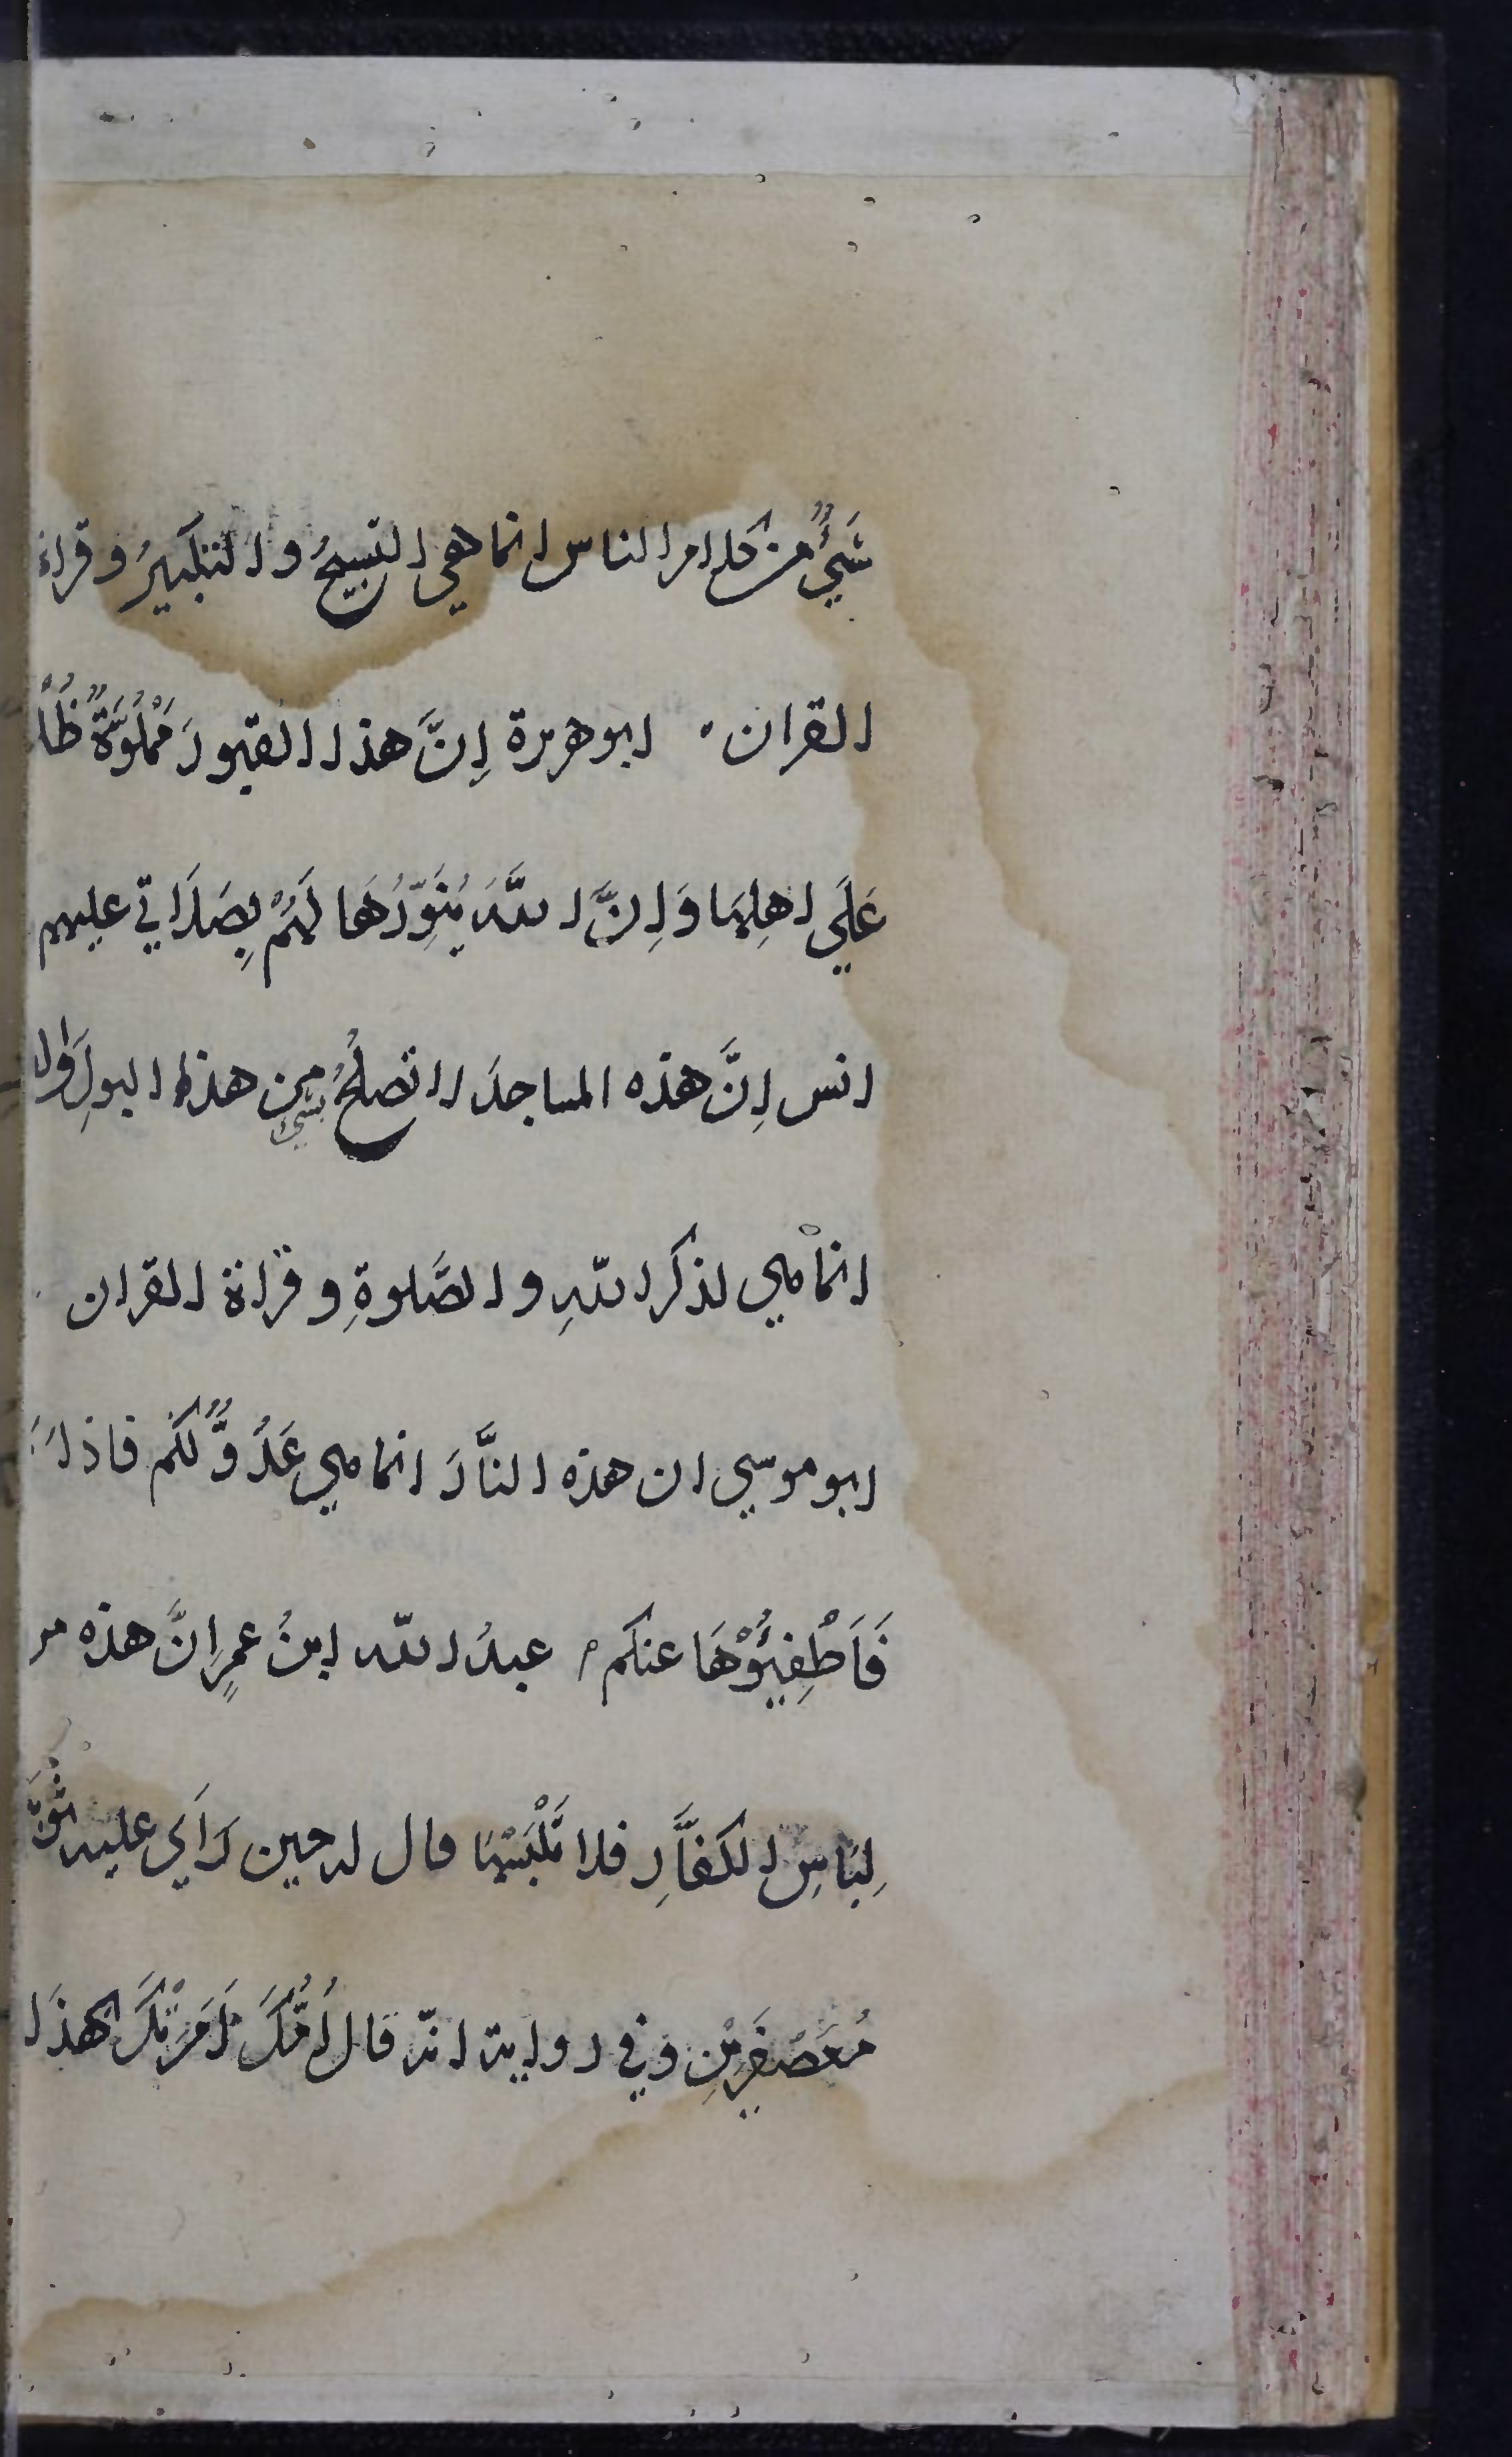 شَيْءٌ من كلام الناس انما هي التسبيحُ والتكبيرُ وقراءة
القران . ابو هريرة إنَّ هذا القبورَ مَمْلُوءَةٌ ظُ
عَلَي اهلِهَا وَإِنَّ اللّٰهَ يُنَوِّرُهَا لَهُمْ بِصَلَاتي عليهم
انس إِنَّ هذه المساجدَ لا تصلُحُ بشيء من هذا البولِ ولا
انما هي لذكر اللّٰهِ والصَّلوةِ وقراة القران
ابو موسي ان هذه النَّارَ انما هي عَدُوٌّ لكُم فاذا
فَاَطْفِئُوْهَا عنكم عبدُ اللّٰه ابنُ عمرٍ اِنَّ هذه مر
لِبَاسِ الكفَّارِ فلا تَلْبَسْهَا قال له حين رَاَي عليه ثَوْبَ
مُعَصْفَرَيْنِ وفي رواية انّه قال اُمُّكَ اَمَرَتْكَ بهذَا